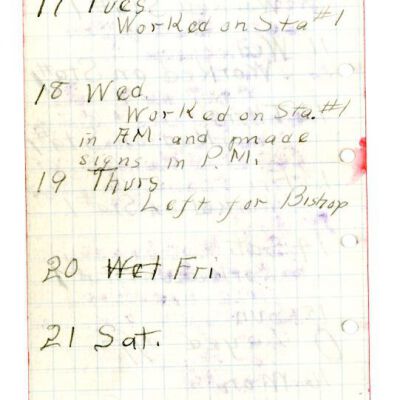 17 Tues.
Worked on Sta #1
18 Wed.
Worked on Sta. #1
in A.M. and made
signs in P.M.
19 Thurs
Left for Bishop
20 Wed Fri.
21 Sat.